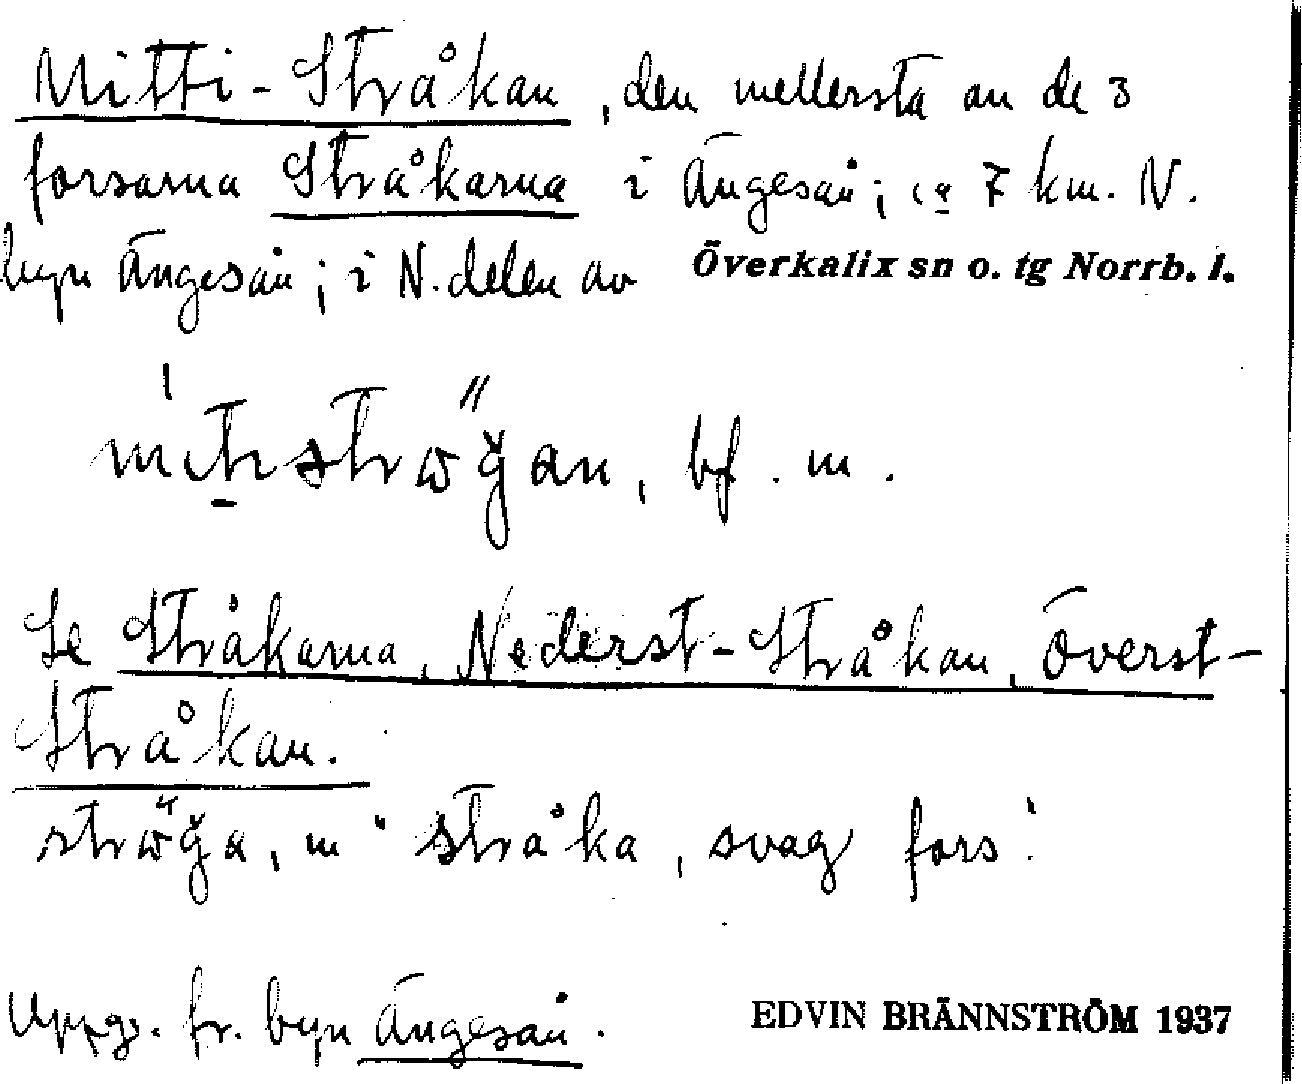 Mitti-Stråkan, den mellersta au de 3
forsarna Stråkarna i Ängesån; ca 7 km. N.
byn Ängesån; i N. delen av Överkalix sn o. tg Norrb. l.
bf. m.
Se Stråkarna, Nederst-Stråkan, Överst-
Stråkan.
m "stråka, svag fors".
Uppg. fr. byn Ängesån. EDVIN BRÄNNSTRÖM 1937